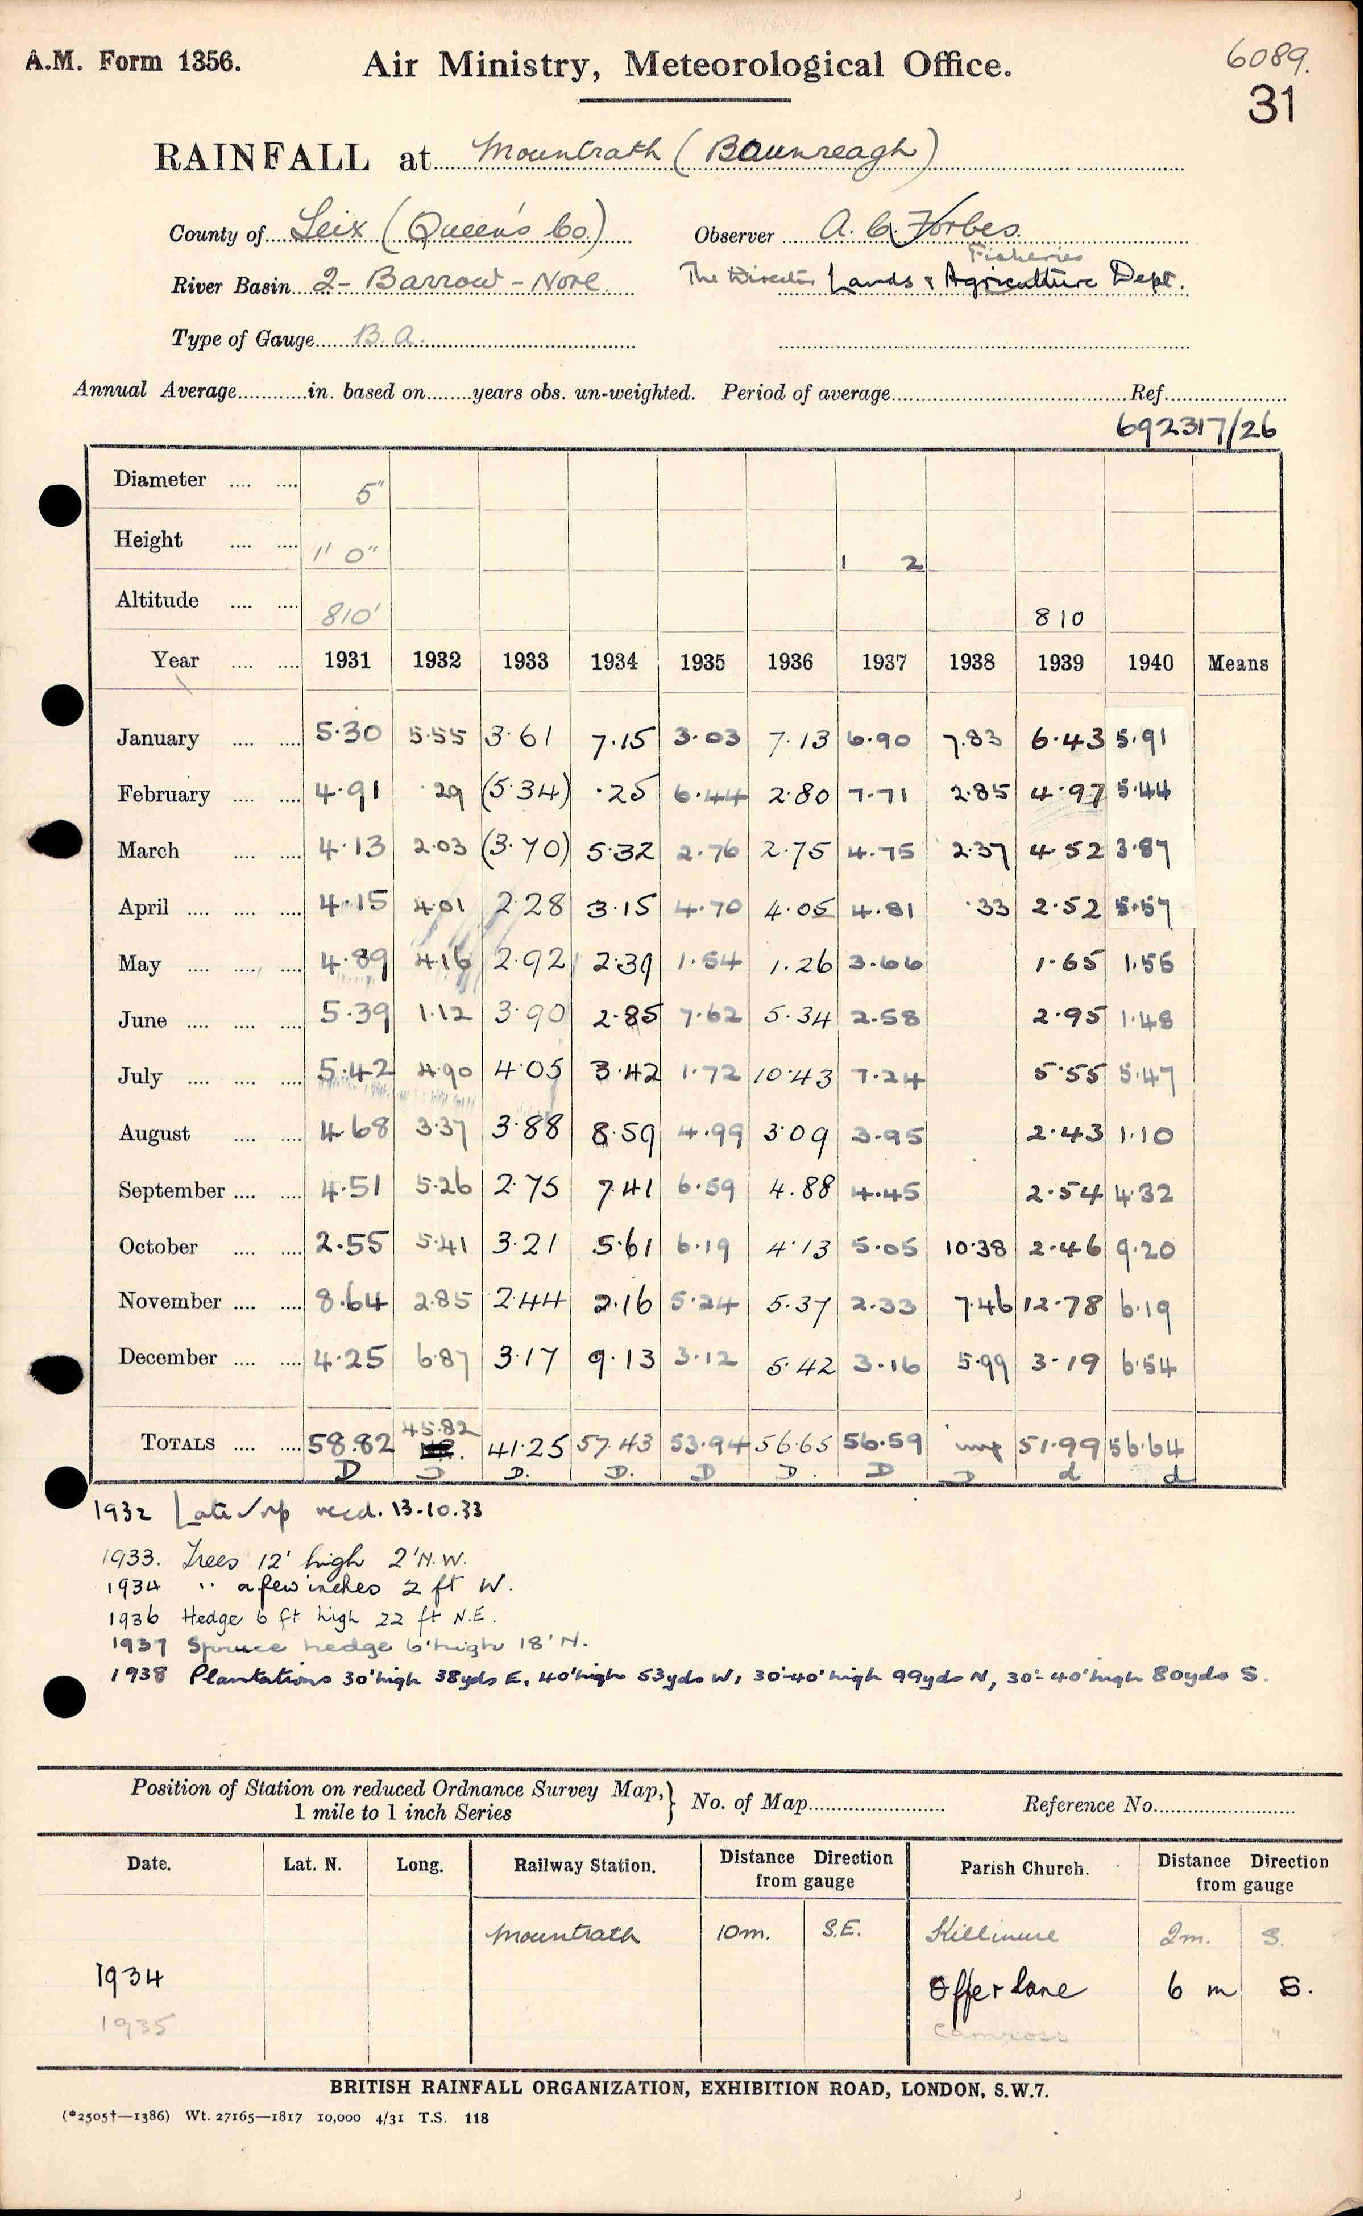 A.M. Form 1356. Air Ministry, Meteorological Office. 6089.
31
RAINFALL at Mountrath (Baunreagh)
County of Leix (Queen's Co.) Observer A. C. Forbes
Fisheries
River Basin 2- Barrow - Nore The Director Lands & Agriculture Dept.
Type of Gauge B.A.
Annual Average in. based on years obs. un-weighted. Period of average Ref.
692317/26
Diameter 5"
Height 1' 0" 1 2
Altitude 810' 810
Year 1931 1932 1933 1934 1935 1936 1937 1938 1939 1940 Means
January 5·30 5·55 3·61 7·15 3·03 7·13 6·90 7.83 6·43 5·91
February 4·91 ·29 (5·34) ·25 6·44 2·80 7·71 2·85 4·97 5·44
March 4·13 2·03 (3·70) 5·32 2·76 2·75 4·75 2·37 4·52 3·87
April 4·15 4·01 2·28 3·15 4·70 4·05 4·81 ·33 2·52 5·57
May 4·89 4·16 2·92 2·39 1·54 1·26 3·66 1·65 1·55
June 5·39 1·12 3·90 2·85 7·62 5·34 2·58 2·95 1·48
July 5·42 4·90 4·05 3·42 1·72 10·43 7·24 5·55 5·47
August 4·68 3·37 3·88 8·59 4·99 3·09 3·95 2·43 1·10
September 4·51 5·26 2·75 7·41 6·59 4.88 4·45 2·54 4·32
October 2·55 5·41 3·21 5·61 6·19 4·13 5·05 10·38 2·46 9·20
November 8·64 2·85 2·44 2·16 5·24 5·37 2·33 7·46 12·78 6·19
December 4·25 6·87 3·17 9·13 3·12 5·42 3·16 5·99 3·19 6·54
45·82
TOTALS 58.82 41·25 57·43 53·94 56·65 56·59 51·99 56·64
D D D. D. D D. D D d d
1932 Late recd. 13·10·33
1933. Trees 12' high 2' N.W.
1934 " a few inches 2 ft W.
1936 Hedge 6 ft high 22 ft N.E.
1937 Spruce hedge 6' high 18' N.
1938 Plantations 30' high 38yds E, 40' high 53yds W, 30'-40' high 99yds N, 30'-40' high 80yds S.
Position of Station on reduced Ordnance Survey Map, } No. of Map Reference No.
1 mile to 1 inch Series
Date. Lat. N. Long. Railway Station. Distance Direction from gauge Parish Church. Distance Direction from gauge
Mountrath 10m. S.E. 2m. S.
1934 Offerlane 6 m S.
1935 Camross " "
BRITISH RAINFALL ORGANIZATION, EXHIBITION ROAD, LONDON, S.W.7.
(*2505†—1386) Wt. 27165—1817 10,000 4/31 T.S. 118